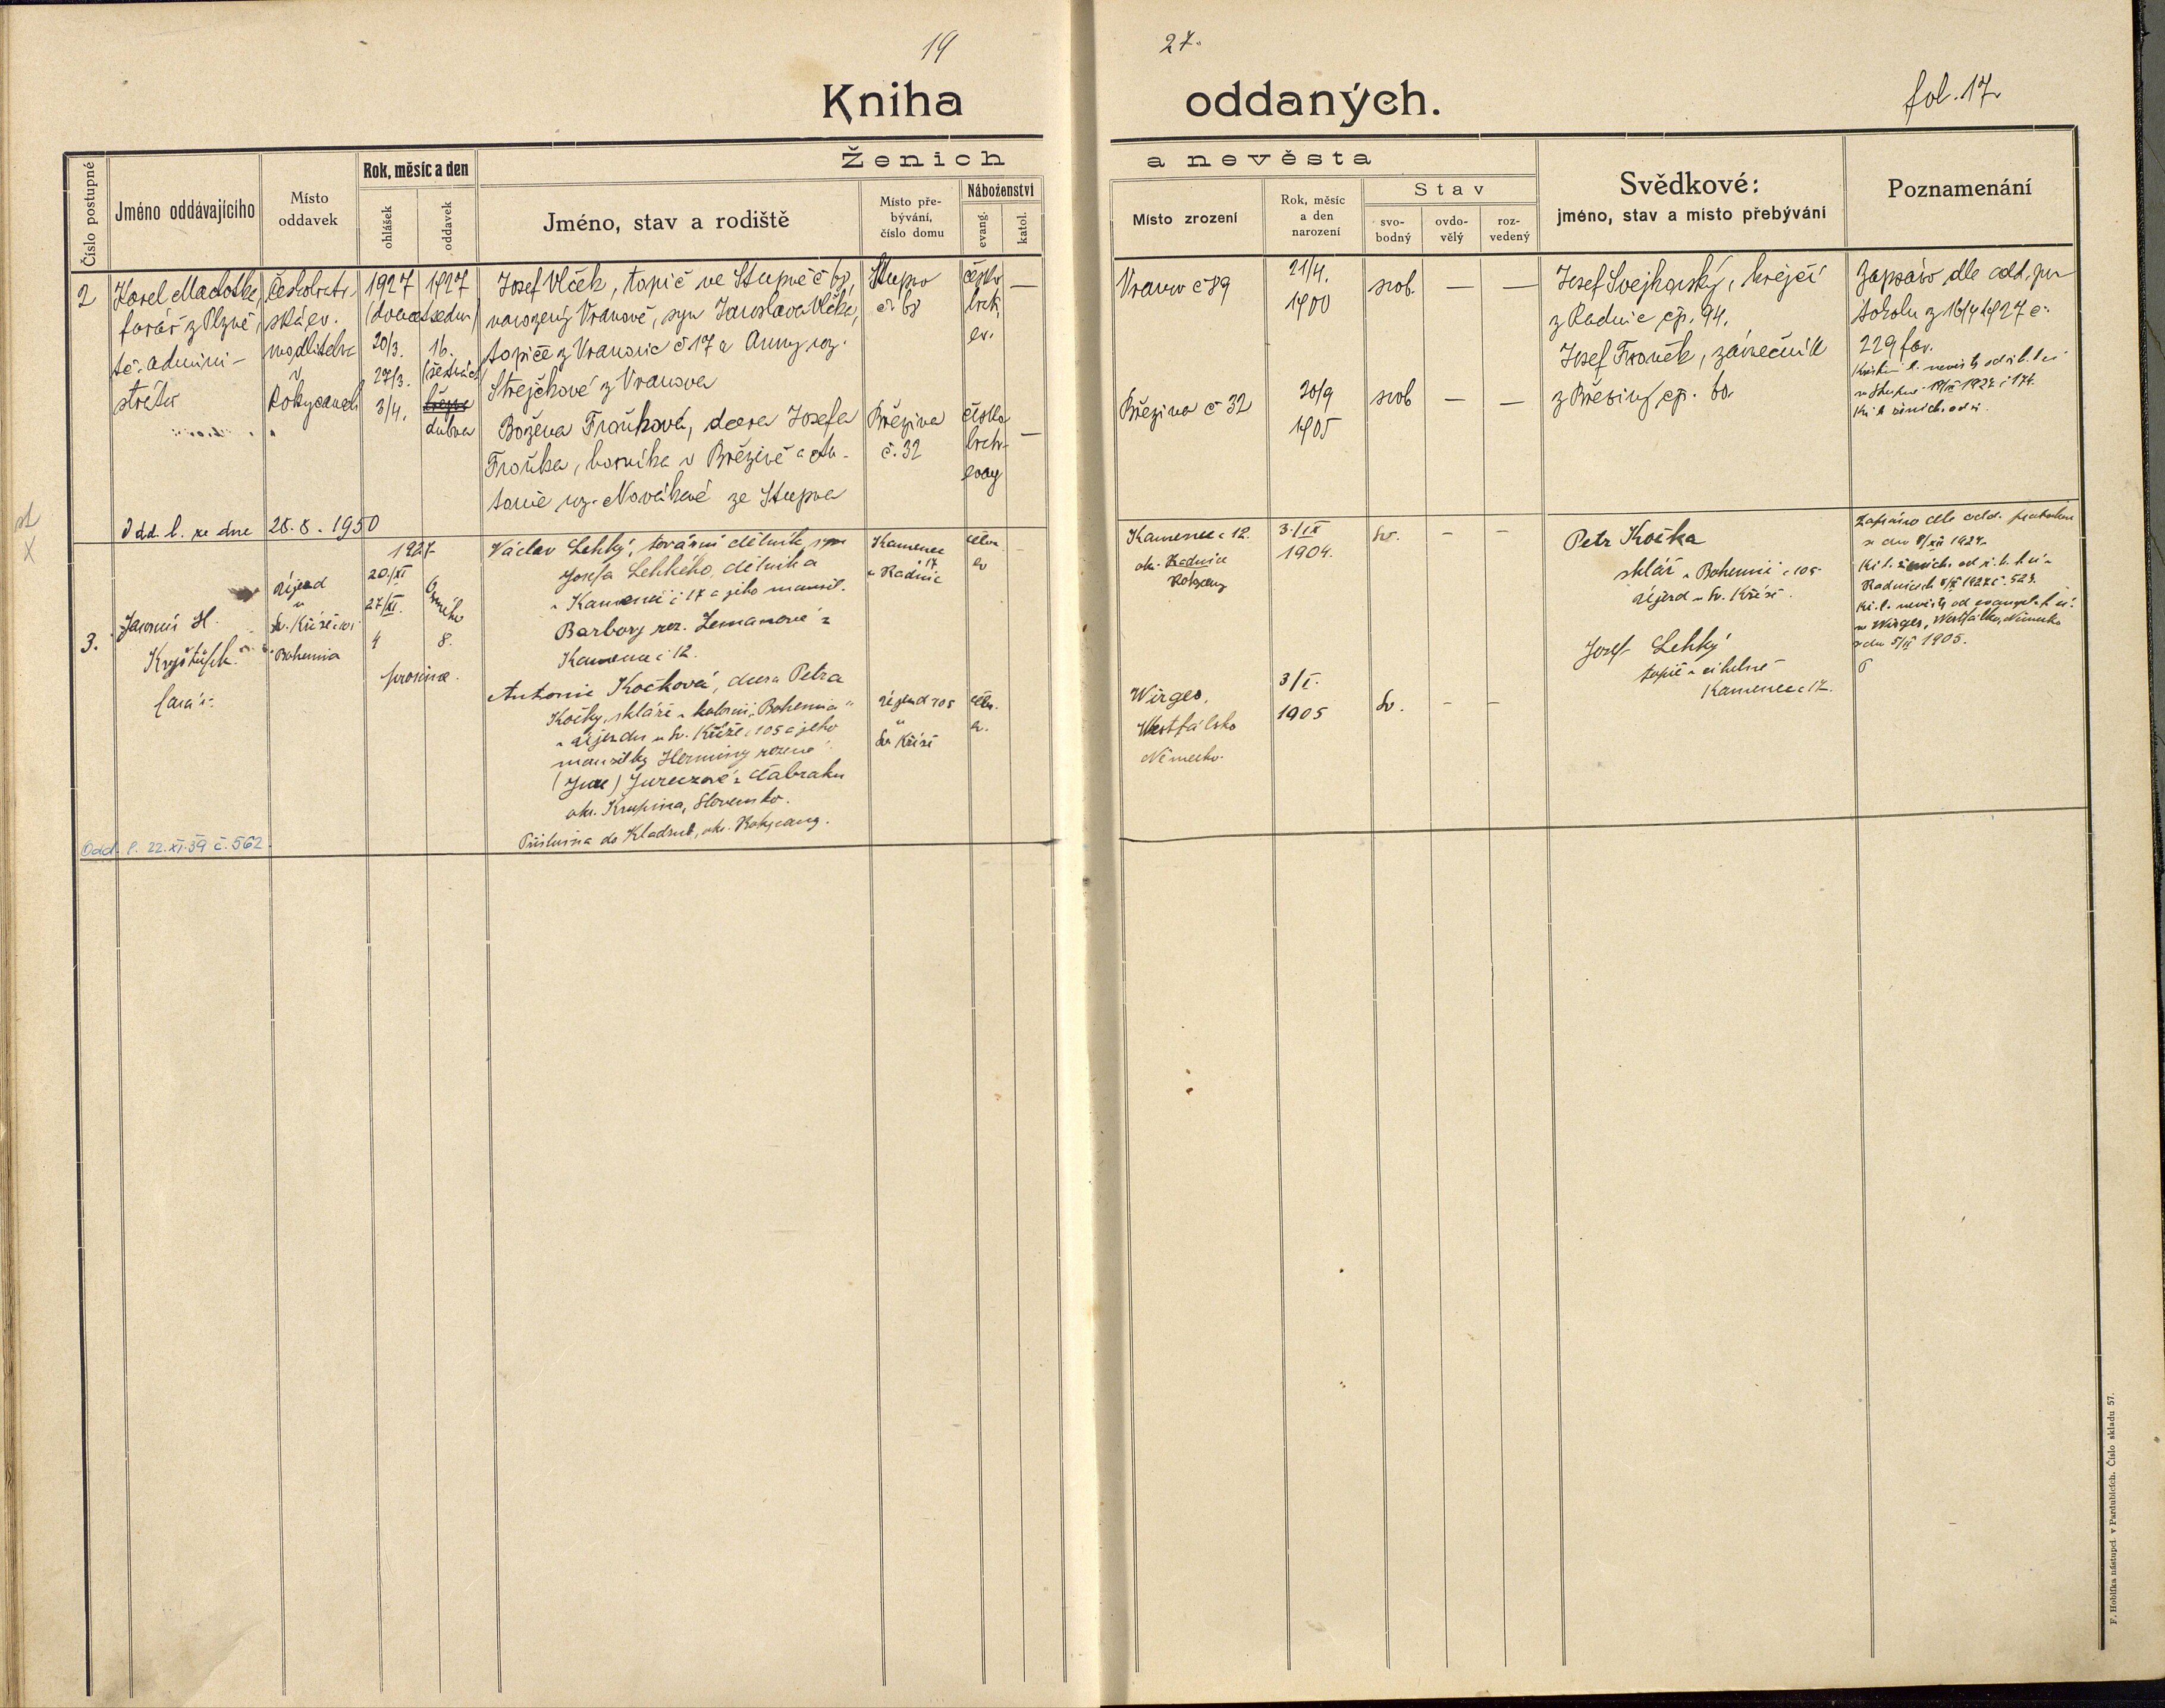 19 27.
Kniha oddaných.
fol. 17.
Ženich a nevěsta
Číslo postupné
Jméno oddávajícího
Místo oddavek
Rok, měsíc a den
ohlášek
oddavek
Jméno, stav a rodiště
Místo pře-
bývání,
číslo domu
Náboženství
evang.
katol.
Místo zrození
Rok, měsíc
a den
narození
Stav
svo-
bodný
ovdo-
vělý
roz-
vedený
Svědkové:
jméno, stav a místo přebývání
Poznamenání
2
Karel Madotka,
farář z Plzně,
administrátor
Českobratr-
ská ev.
modlitebna
v
Rokycanech
1927
20/3.
27/3.
3/4.
1927
16.
dubna
Josef Vlček, topič ve Stupně č 68,
narozený Vranově, syn Jaroslava Vlčka,
topiče z Vranovic č 17 a Anny roz.
Strejčkové z Vranova
Stupno
č. 68
česko
brat.
ev.
—
Vranov č 89
21/4.
1900
svob. — —
Josef Svejkovský, krejčí
z Radnic čp. 94.
Josef Froněk, zámečník
z Březiny čp. 60.
Zapsáno dle odd. pro-
tokolu z 16/4 1927 č.
229 far.
Božena Froňková, dcera Josefa
Froňka, horníka v Březině a An-
tonie roz. Novákové ze Stupna
Březina
č. 32
česko
bratr.
evang
—
Březina č 32
20/9
1905
svob — —
Odd. l. ze dne 28.8.1950
3.
Jaromír H.
Kryštůfek
farář.
Újezd
u
Sv. Kříže č. 101
Bohemia
1927
20./XI
27/XI.
4
prosince.
8.
Václav Lehký, tovární dělník, syn
Josefa Lehkého, dělníka
v Kamenci č 17 a jeho manžel.
Barbory roz. Zemanové z
Kamence č 12.
Kamenec
17
u Radnic
Kamenec č. 12.
ok. Radnice
Rokycany
3./IX
1904.
Sv. - -
Petr Kočka
sklář v Bohemii č 105
Újezd u Sv. Kříže.
Josef Lehký
topič v cihelně
Kamenec č 17.
Zapsáno dle odd. protokolu
ze dne 8/XII 1927.
Radnicích 5/XI 1927 č. 523.
Kř. l. nevěsty od evangel. f. ú.
ve Wirges, Westfálsko, Německo
z dne 5/II 1905.
Antonie Kočková, dcera Petra
Kočky, skláře v kolonii "Bohemia"
v Újezdu u Sv. Kříže č 105 a jeho
manželky Herminy rozené
(Jure) Jureczové z Čabraku
okr. Krupina, Slovensko.
Příslušna do Kladrub, okr. Rokycany.
Újezd 105
u
Sv. Kříže
Wirges,
Westfálsko
Německo.
3/I.
1905
Sv. - -
Odd. l. 22.XI.39 č. 562.
F. Hoblíka nástupci v Pardubicích. Číslo skladu 57.